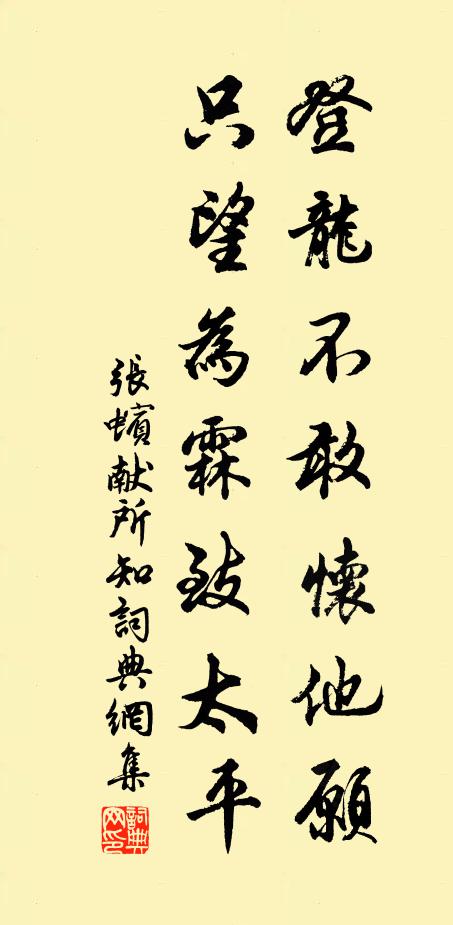 登龍不敢懷他願
只望為霖致太平
張蠙献所知詞典網集
詞典网印